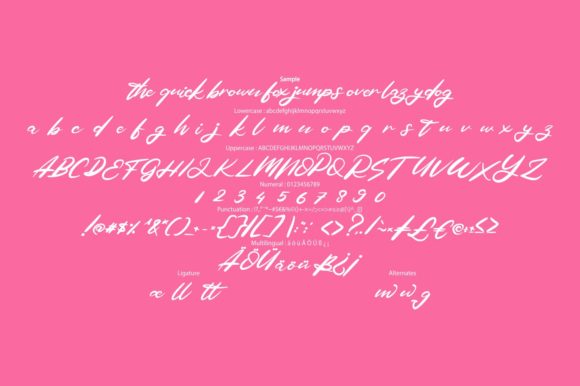 Sample
the quick brown fox jumps over lazy dog
Lowercase : abcdefghijklmnopqrstuvwxyz
a b c d e f g h i j k l m n o p q r s t u v w x y z
Uppercase : ABCDEFGHIJKLMNOPQRSTUVWXYZ
ABCDEFGHIJKLMNOPQRSTUVWXYZ
Numeral : 0123456789
1 2 3 4 5 6 7 8 9 0
Multilingual : ä ö ü Ä Ö Ü ß ¿ ¡
ÄÖÜäöüß¿¡
Ligature Alternates
æ ll tt m w g